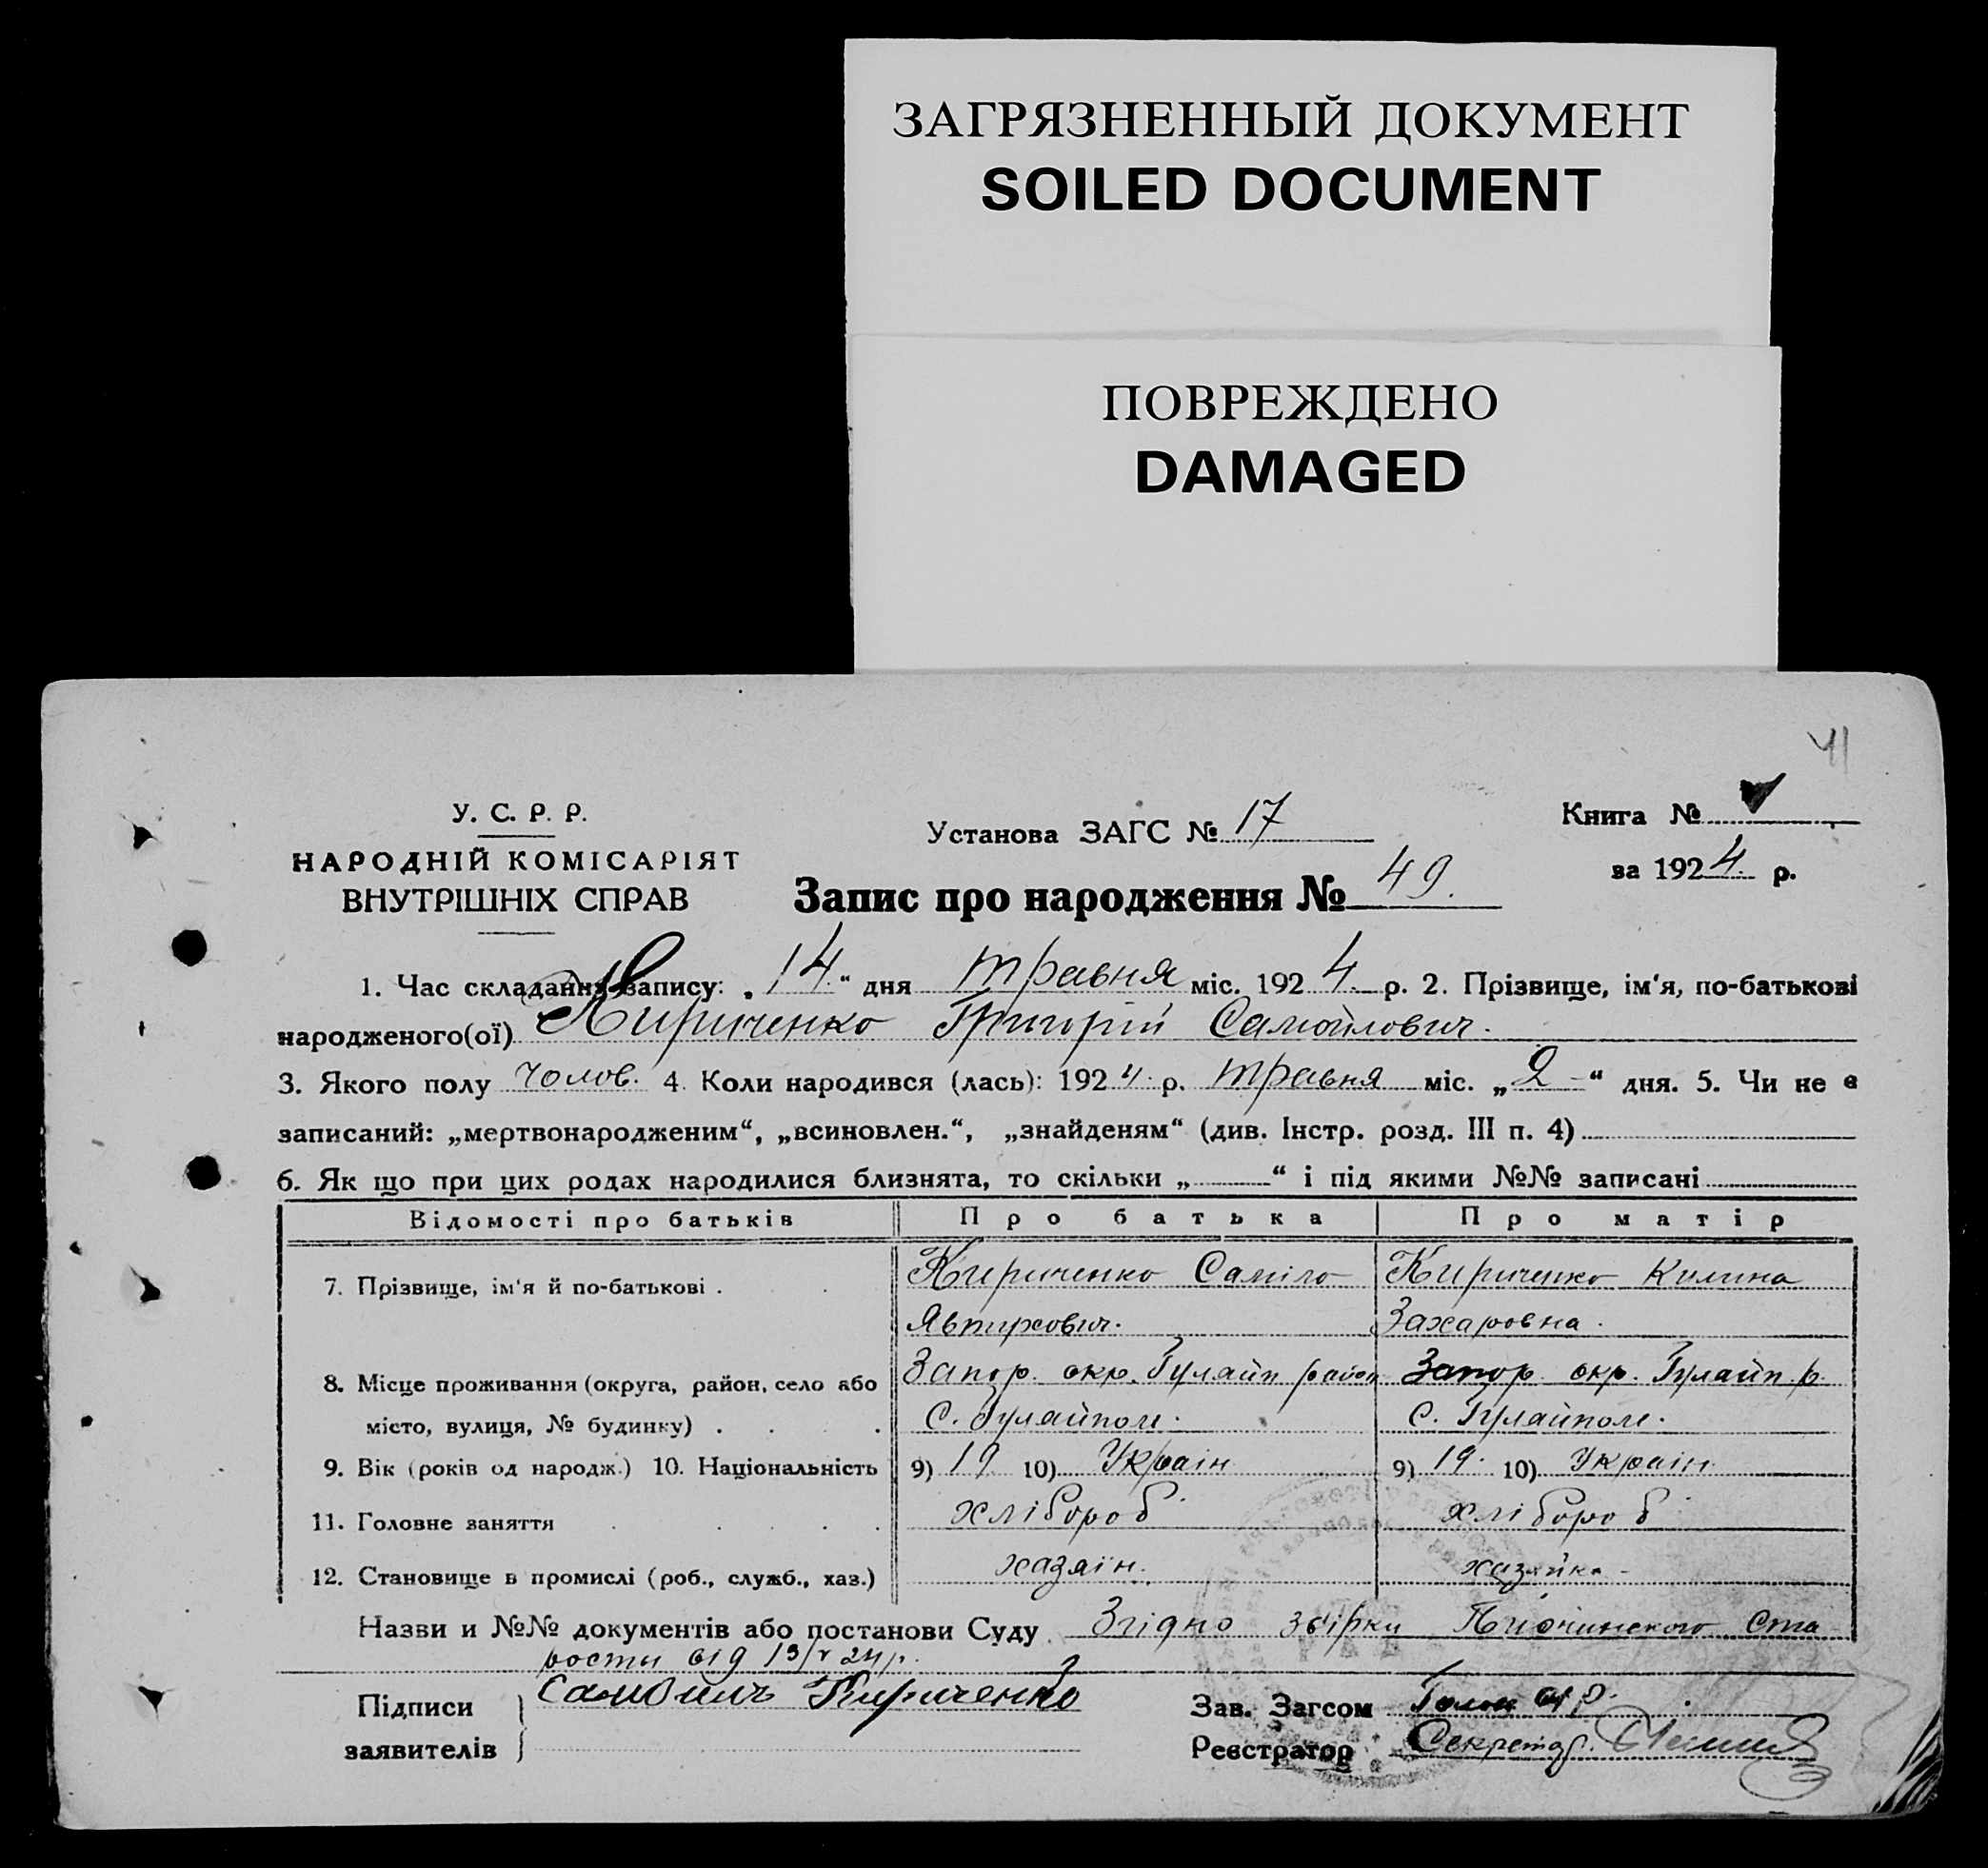 ЗАГРЯЗНЕННЫЙ ДОКУМЕНТ
SOILED DOCUMENT
ПОВРЕЖДЕНО
DAMAGED
41
У. С. Р. Р.
НАРОДНІЙ КОМІСАРІЯТ
ВНУТРІШНІХ СПРАВ
Установа ЗАГС № 17
Книга №
за 1924 р.
Запис про народження № 49.
1. Час складання запису: „14“ дня травня міс. 1924 р. 2. Прізвище, ім'я, по-батькові
народженого(ої) Кириченко Григорій Самойлович.
3. Якого полу чолов. 4. Коли народився (лась): 1924 р. травня міс. „2“ дня. 5. Чи не є
записаний: „мертвонародженим“, „всиновлен.“, „знайденям“ (див. Інстр. розд. III п. 4)
6. Як що при цих родах народилися близнята, то скільки „ “ і під якими №№ записані
Відомості про батьків Про батька Про матір
7. Прізвище, ім'я й по-батькові . Кириченко Саміло Кириченко Килина
Явтихович. Захаровна.
8. Місце проживання (округа, район, село або Запор. окр. Гуляйп. район Запор. окр. Гуляйп. р.
місто, вулиця, № будинку) . С. Гуляйполе. С. Гуляйполе.
9. Вік (років од народж.) 10. Національність 9) 19 10) Україн 9) 19. 10) Україн
11. Головне заняття хлібороб хлібороб
12. Становище в промислі (роб., служб., хаз.) хазяїн. хазяйка
Назви и №№ документів або постанови Суду Згідно збірки Ста-
рости від 13/V 24 р.
Підписи
заявителів
Самоилъ Кириченко
Зав. Загсом Голов
Реєстратор Секретар